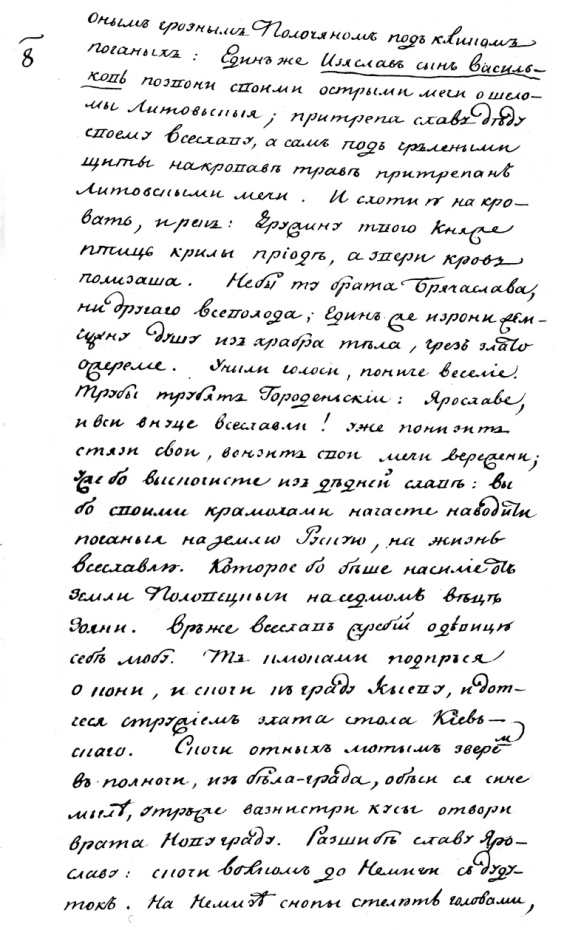 8
онымъ грознымъ Полочяномъ подъ кликомъ
поганыхъ: Единъ же Изяславъ сынъ Василь-
ковъ позвони своими острыми мечи о шело-
мы Литовьскыя; притрепа славу дѣду
своему Всеславу, а самъ подъ чрълеными
щиты на кровавѣ травѣ притрепанъ
Литовскыми мечи. И схоти ю на кро-
вать, и рекъ: дружину твою Княже
птиць крилы пріодѣ, а звери кровь
полизаша. Не бы ту брата Брячаслава,
ни другаго Всеволода; Единъ же изрони жем-
чужну душу изъ храбра тѣла, чрезъ злато
ожереліе. Уныли голоси, пониче веселіе.
Трубы трубятъ Городеньскіи: Ярославе,
и вси внуце Всеславли! уже понизить
стязи свои, вонзить свои мечи вережени;
уже бо выскочисте изъ дѣдней славѣ: вы
бо своими крамолами начясте наводити
поганыя на землю Рускую, на жизнь
Всеславлю. Которое бо бѣше насиліе отъ
Земли Половецкыи на седмомъ вѣцѣ
Зояни. Връже Всеславъ жребій о дѣвицю
себѣ любу. Тъ клюками подпръся
о кони, и скочи къ граду Кыеву, и дот-
чеся стружіемъ злата стола Кіевь-
скаго. Скочи отныхъ лютымъ зверемъ
въ полночи, изъ бѣла-града, обѣси ся сине
мьглѣ, утръже вазнистри кусы отвори
врата Новуграду. Разшибѣ славу Яро-
славу: скочи волкомъ до Немиги съ Дуду-
токъ. На Немизѣ снопы стелютъ головами,